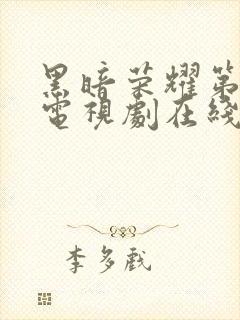 黑暗荣耀第
電視劇在綫
李多戲